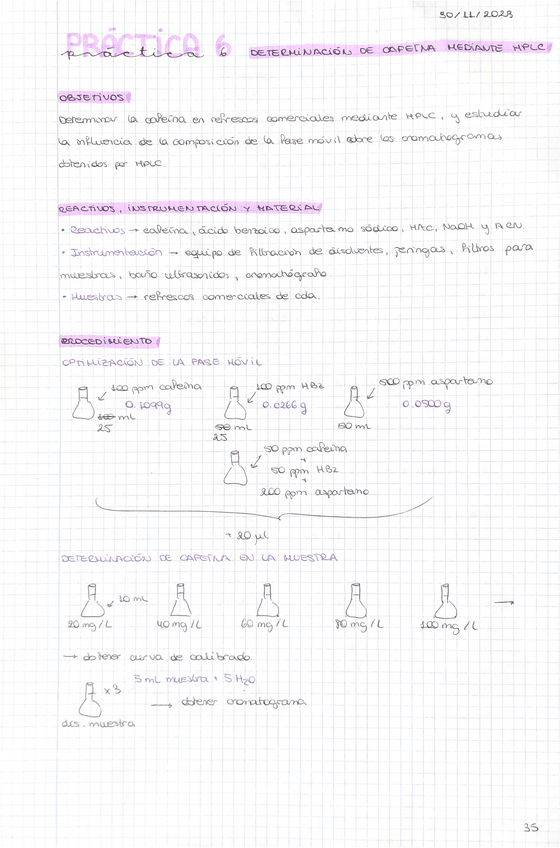 30/11/2023
PRÁCTICA 6
práctica 6 DETERMINACIÓN DE CAFEÍNA MEDIANTE HPLC
OBJETIVOS
Determinar la cafeína en refrescos comerciales mediante HPLC, y estudiar
la influencia de la composición de la fase móvil sobre los cromatogramas
obtenidos por HPLC
REACTIVOS, INSTRUMENTACIÓN Y MATERIAL
• Reactivos → cafeína, ácido benzoico, aspartamo sódico, HAc, NaOH y ACN.
• Instrumentación → equipo de filtración de disolventes, jeringas, filtros para
muestras, baño ultrasonidos, cromatógrafo
• Muestras → refrescos comerciales de cola.
PROCEDIMIENTO
OPTIMIZACIÓN DE LA FASE MÓVIL
100 ppm cafeína 100 ppm HBz 500 ppm aspartamo
0.1099g 0.0266g 0.0500g
100 mL 50 mL 50 mL
25 25
50 ppm cafeína
+
50 ppm HBz
+
200 ppm aspartamo
+ 20 µl
DETERMINACIÓN DE CAFEÍNA EN LA MUESTRA
10 mL →
20 mg/L 40 mg/L 60 mg/L 80 mg/L 100 mg/L
→ obtener curva de calibrado.
x3 5 mL muestra + 5 H2O
→ obtener cromatograma
dis. muestra
35